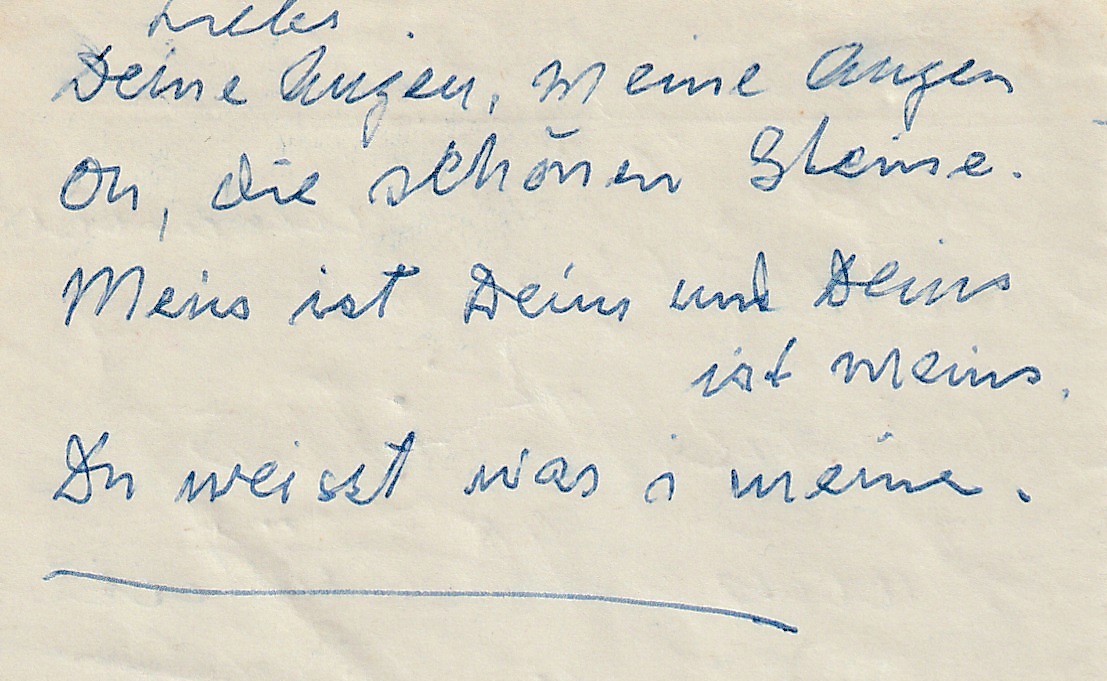 Liebes
Deine Augen, Meine Augen
Oh, die schönen Steine.
Meins ist Deins und Deins
ist meins.
Du weisst was i meine.